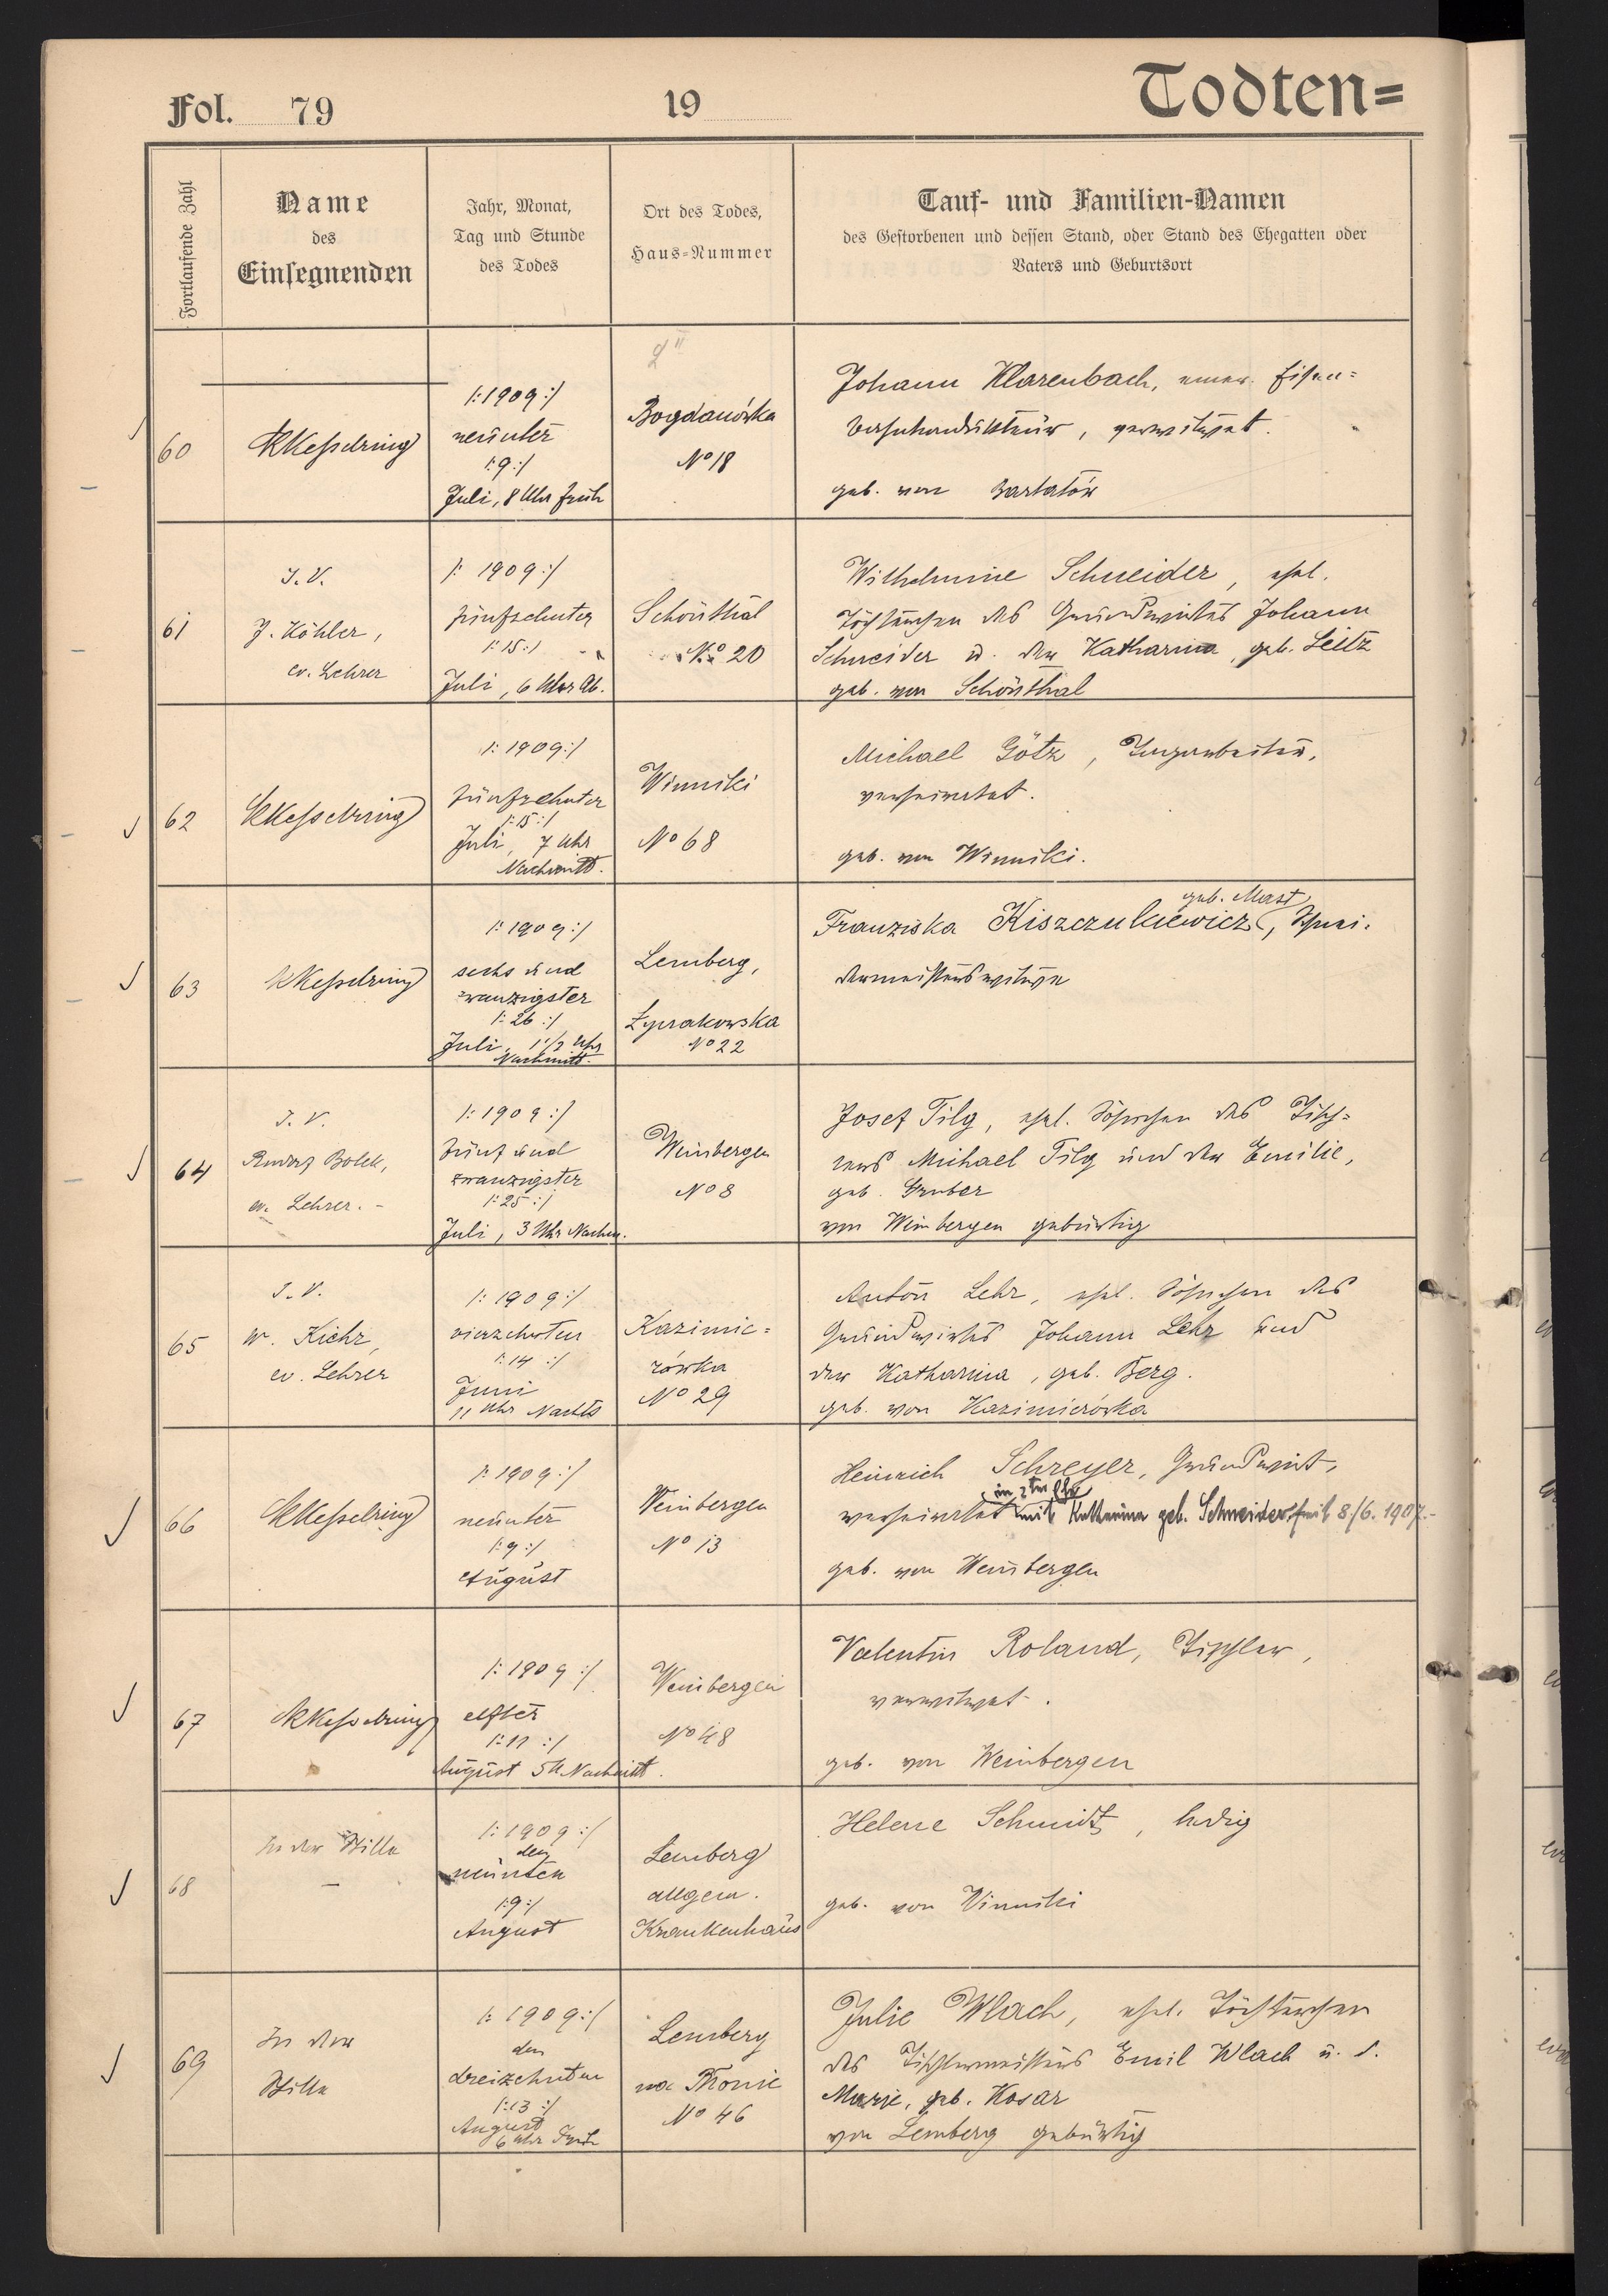 Fol. 79
19
Todten=
Fortlaufende Zahl
Name
des
Einsegnenden
Jahr, Monat,
Tag und Stunde
des Todes
Ort des Todes,
Haus-Nummer
Tauf- und Familien-Namen
des Gestorbenen und dessen Stand, oder Stand des Ehegatten oder
Vaters und Geburtsort
60
Kesselring
/:1909:/
neunter
/:9:/
Juli, 8 Uhr früh
Bogdanówka
No 18
Johann Klarenbach, emer. Eisen=
bahnkondukteur, verwitwet.
geb. von Bartatów
61
I. V.
J. Köhler,
ev. Lehrer
/: 1909:/
fünfzehnter
/:15:/
Juli, 6 Uhr Ab.
Schönthal
No 20
Wilhelmine Schneider, ehel.
Töchterchen des Grundwirtes Johann
Schneider u. der Katharina, geb. Leitz
geb. von Schönthal
62
Kesselring
/:1909:/
fünfzehnter
/:15:/
Juli, 7 Uhr
Nachmitt.
Winniki
No 68
Michael Götz,
verheiratet.
geb. von Winniki.
63
Kesselring
/:1909:/
sechs und
zwanzigster
/:26:/
Juli, 1 1/2 Uhr
Nachmitt.
Lemberg,
Łyczakowska
No 22
geb. Mast
Franziska Kiszczukiewicz, Schnei-
dermeisterswitwe
64
I. V.
Rudolf Bolek,
ev. Lehrer. -
/:1909:/
fünf und
zwanzigster
/:25:/
Juli, 3 Uhr Nachm.
Weinbergen
No 8
Josef Tilg, ehel. Söhnchen des Tisch=
lers Michael Tilg und der Emilie,
geb. Gruber
von Weinbergen gebürtig
65
I. V.
W. Kiehr,
ev. Lehrer
/:1909:/
vierzehnten
/:14:/
Juni
11 Uhr Nachts
Kazimie=
rówka
No 29
Anton Lehr, ehel. Söhnchen des
Grundwirtes Johann Lehr und
der Katharina, geb. Berg.
geb. von Kazimierówka
66
Kesselring
/:1909:/
neunter
/:9:/
August
Weinbergen
No 13
Heinrich Schreyer, Grundwirt,
in 2ter Ehe
verheiratet mit Katharina geb. Schneider seit 8/6. 1907.-
geb. von Weinbergen
67
Kesselring
/:1909:/
elfter
/:11:/
August 5 U. Nachmitt.
Weinbergen
No 48
Valentin Roland, Tischler,
verwitwet.
geb. von Weinbergen
68
In der Stille
-
/:1909:/
den
neunten
/:9:/
August
Lemberg
allgem.
Krankenhaus
Helene Schmidt, ledig
geb. von Vinniki
69
In der
Stille
/:1909:/
den
dreizehnten
/:13:/
August
6 Uhr Früh
Lemberg
na Błonie
No 46
Julie Wlach, ehel. Töchterchen
des Tischlermeisters Emil Wlach u. d.
Marie, geb. Kosar
von Lemberg gebürtig